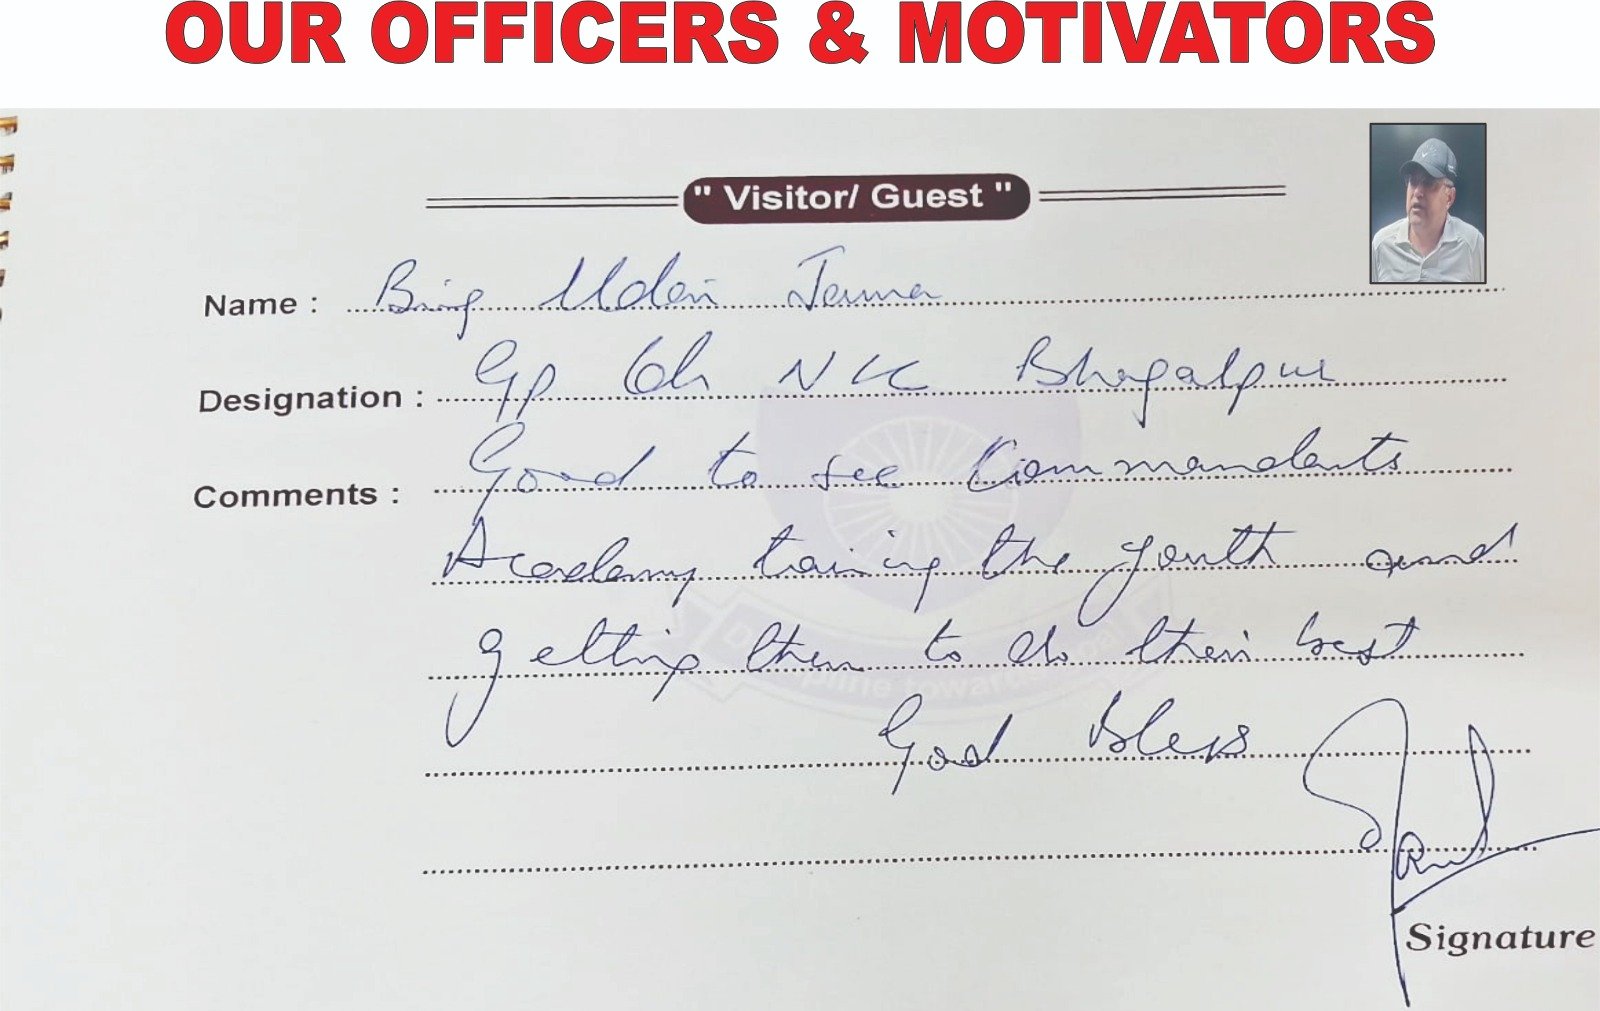 OUR OFFICERS & MOTIVATORS
" Visitor/ Guest "
Name : Brig Udai
Designation : Gp Cdr NCC Bhagalpur
Comments : Good to see Commandants
Academy training the youth and
getting them to do their best
God Bless
Signature